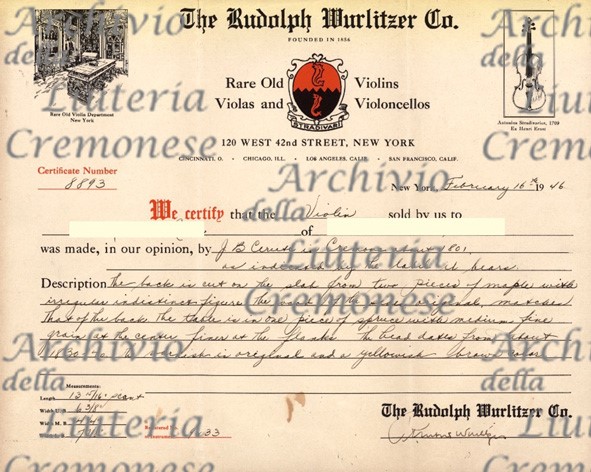 The Rudolph Wurlitzer Co.
FOUNDED IN 1856
Rare Old Violins
Violas and Violoncellos
STRADIVARI
Rare Old Violin Department
New York
Antonius Stradivarius, 1709
120 WEST 42nd STREET, NEW YORK
CINCINNATI, O. · CHICAGO, ILL. · LOS ANGELES, CALIF. · SAN FRANCISCO, CALIF.
Certificate Number
8893
New York, February 16th 1946
We certify that the Violin sold by us to
of
was made, in our opinion, by J B Ceruti in Cremona about 1801,
as indicated by the label it bears.
Description The back is cut on the slab from two pieces of maple with
irregular indistinct figure the wood of the matches
that of the back. The table is in one piece of spruce with medium fine
grain at the center finer at the flanks. The head dates from about
varnish is original and a yellowish brown color
Measurements:
Length 13 15/16" scant
Width U. B. 6 3/8"
Width M. B.
33
The Rudolph Wurlitzer Co.
Archivio
della
Liuteria
Cremonese
Archivio
della
Liuteria
Cremonese
Archivio
della
Liuteria
Cremonese
Archivio
della
Liuteria
Cremonese
Archivio
della
Liuteria